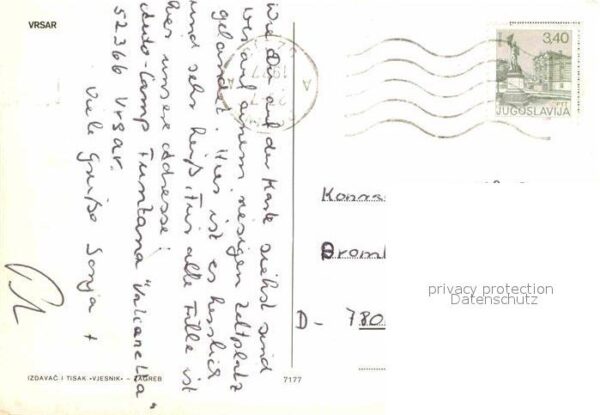 VRSAR
Wie Du auf der Karte siehst sind
wir auf einem riesigen Zeltplatz
gelandet. Hier ist es herrlich
und sehr heiß. Für alle Fälle ist
hier unsere Adresse:
Auto-Camp Funtana "Valkanela"
52366 Vrsar.
Viele Grüße Sonja +
IZDAVAČ I TISAK «VJESNIK» - ZAGREB
7177
3,40
JUGOSLAVIJA
D- 780
privacy protection
Datenschutz